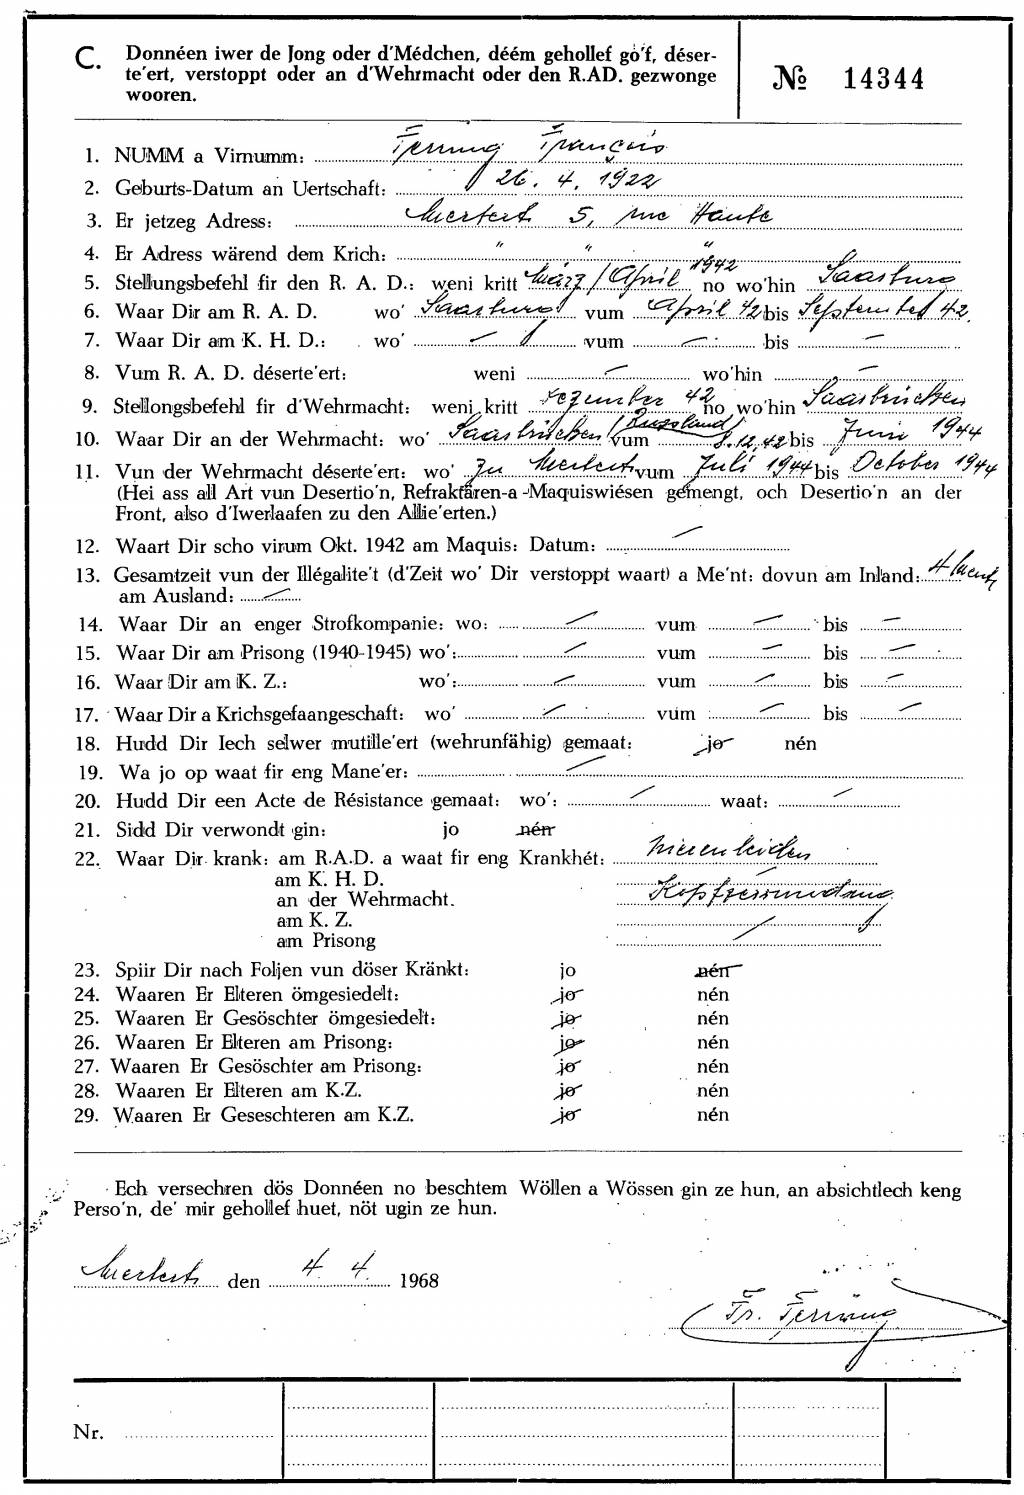 C. Donnéen iwer de Jong oder d'Médchen, déém gehollef go'f, déser-
te'ert, verstoppt oder an d'Wehrmacht oder den R.AD. gezwonge
wooren.
№ 14344
1. NUMM a Virnumm: Ferring François
2. Geburts-Datum an Uertschaft: 26. 4. 1922
3. Er jetzeg Adress: Mertert 5, rue Haute
4. Er Adress wärend dem Krich: " " "
5. Stellungsbefehl fir den R. A. D.: weni kritt März / April 1942 no wo'hin Saarburg
6. Waar Dir am R. A. D. wo' Saarburg vum April 42 bis September 42.
7. Waar Dir am K. H. D.: wo' — vum — bis —
8. Vum R. A. D. déserte'ert: weni — wo'hin —
9. Stellongsbefehl fir d'Wehrmacht: weni kritt Dezember 42 no wo'hin Saarbrücken
10. Waar Dir an der Wehrmacht: wo' Saarbrücken (Russland) vum 8.12.42 bis Juni 1944
11. Vun der Wehrmacht déserte'ert: wo' zu Mertert vum Juli 1944 bis October 1944
(Hei ass all Art vun Desertio'n, Refraktären-a -Maquiswiésen gemengt, och Desertio'n an der
Front, also d'Iwerlaafen zu den Allie'erten.)
12. Waart Dir scho virum Okt. 1942 am Maquis: Datum: —
13. Gesamtzeit vun der Illégalite't (d'Zeit wo' Dir verstoppt waart) a Me'nt: dovun am Inland: 4
am Ausland: —
14. Waar Dir an enger Strofkompanie: wo: — vum — bis —
15. Waar Dir am Prisong (1940-1945) wo': — vum — bis —
16. Waar Dir am K. Z.: wo': — vum — bis —
17. Waar Dir a Krichsgefaangeschaft: wo' — vum — bis —
18. Hudd Dir Iech selwer mutille'ert (wehrunfähig) gemaat: jo nén
19. Wa jo op waat fir eng Mane'er: —
20. Hudd Dir een Acte de Résistance gemaat: wo': — waat: —
21. Sidd Dir verwondt gin: jo nén
22. Waar Dir krank: am R.A.D. a waat fir eng Krankhét: Nierenleiden
am K. H. D. —
an der Wehrmacht. Kopfverwundung
am K. Z. —
am Prisong —
23. Spiir Dir nach Foljen vun döser Kränkt: jo nén
24. Waaren Er Elteren ömgesiedelt: jo nén
25. Waaren Er Gesöschter ömgesiedelt: jo nén
26. Waaren Er Elteren am Prisong: jo nén
27. Waaren Er Gesöschter am Prisong: jo nén
28. Waaren Er Elteren am K.Z. jo nén
29. Waaren Er Geseschteren am K.Z. jo nén
Ech versechren dös Donnéen no beschtem Wöllen a Wössen gin ze hun, an absichtlech keng
Perso'n, de' mir gehollef huet, nöt ugin ze hun.
Mertert, den 4. 4. 1968
Fr. Ferring
Nr.